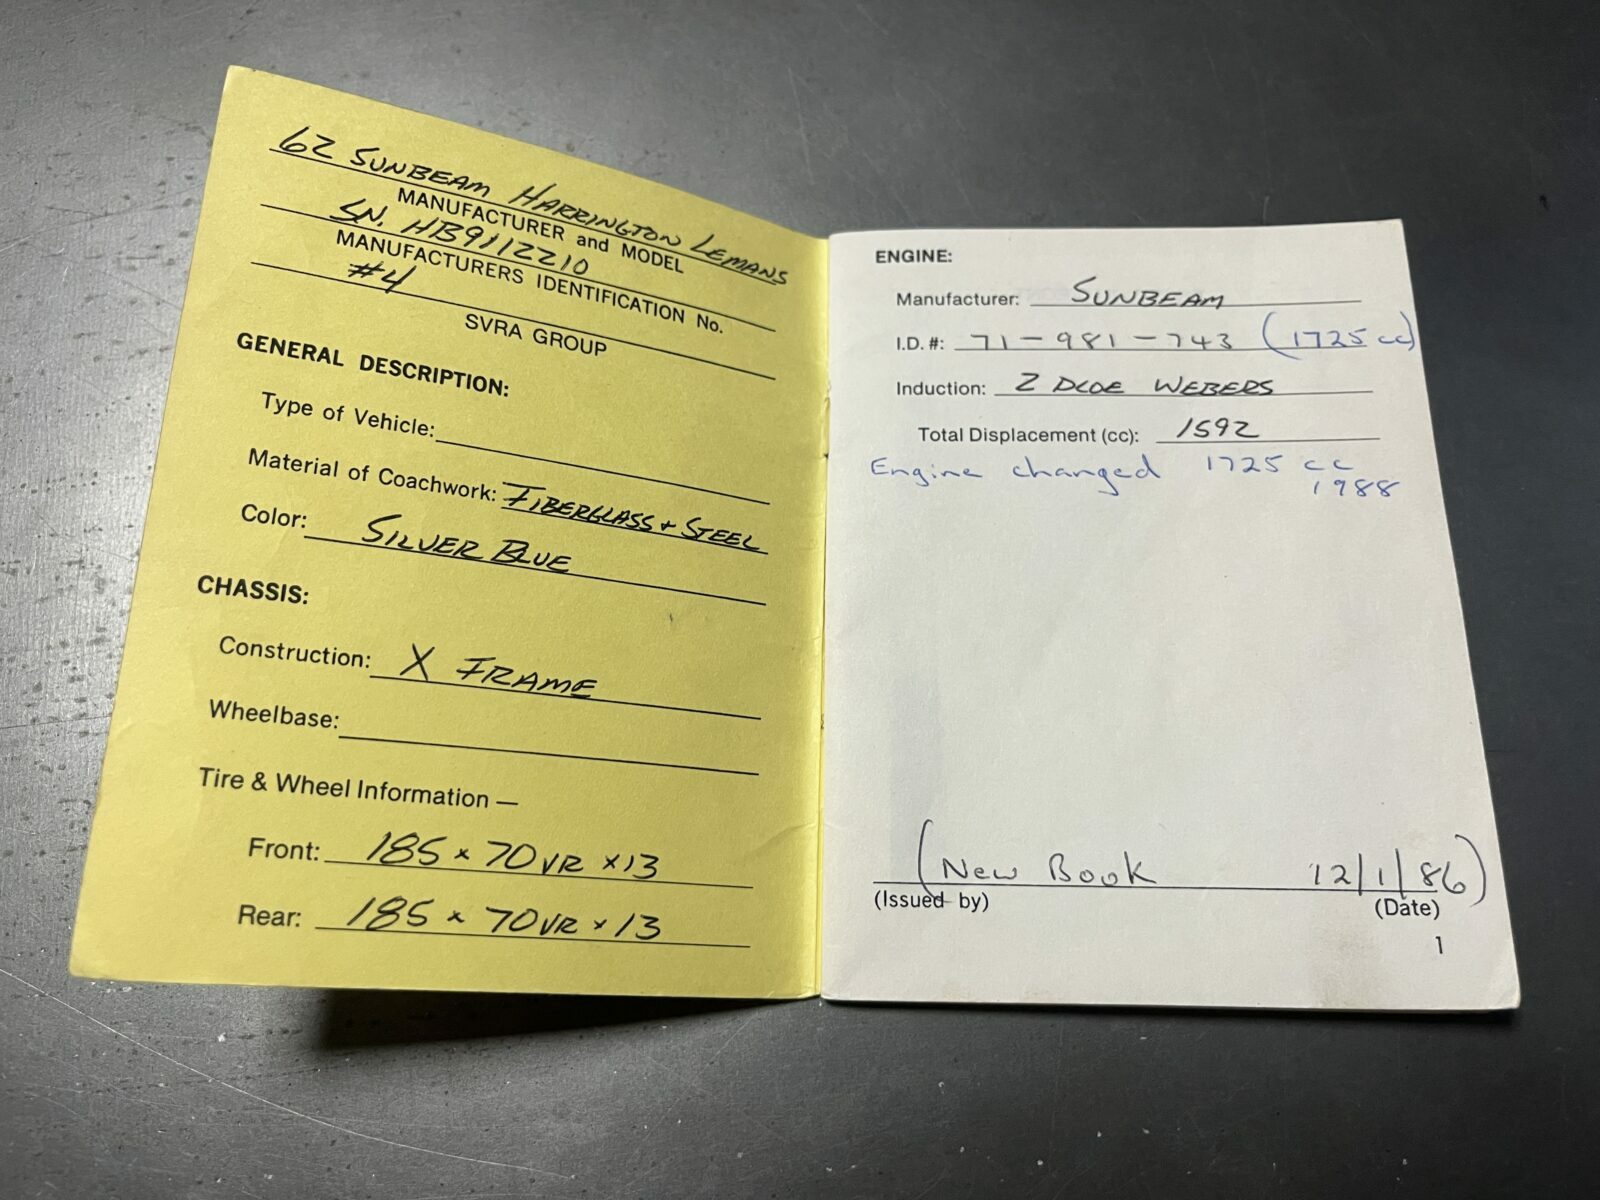 62 SUNBEAM HARRINGTON LEMANS
MANUFACTURER and MODEL
SN. HB9112210
MANUFACTURERS IDENTIFICATION No.
#4
SVRA GROUP
GENERAL DESCRIPTION:
Type of Vehicle:
Material of Coachwork: FIBERGLASS + STEEL
Color: SILVER BLUE
CHASSIS:
Construction: X FRAME
Wheelbase:
Tire & Wheel Information —
Front: 185 × 70 VR × 13
Rear: 185 × 70 VR × 13
ENGINE:
Manufacturer: SUNBEAM
I.D. #: 71-981-743 (1725 cc)
Induction: 2 DCOE WEBERS
Total Displacement (cc): 1592
Engine changed 1725 cc
1988
(New Book 12/1/86)
(Issued by) (Date)
1